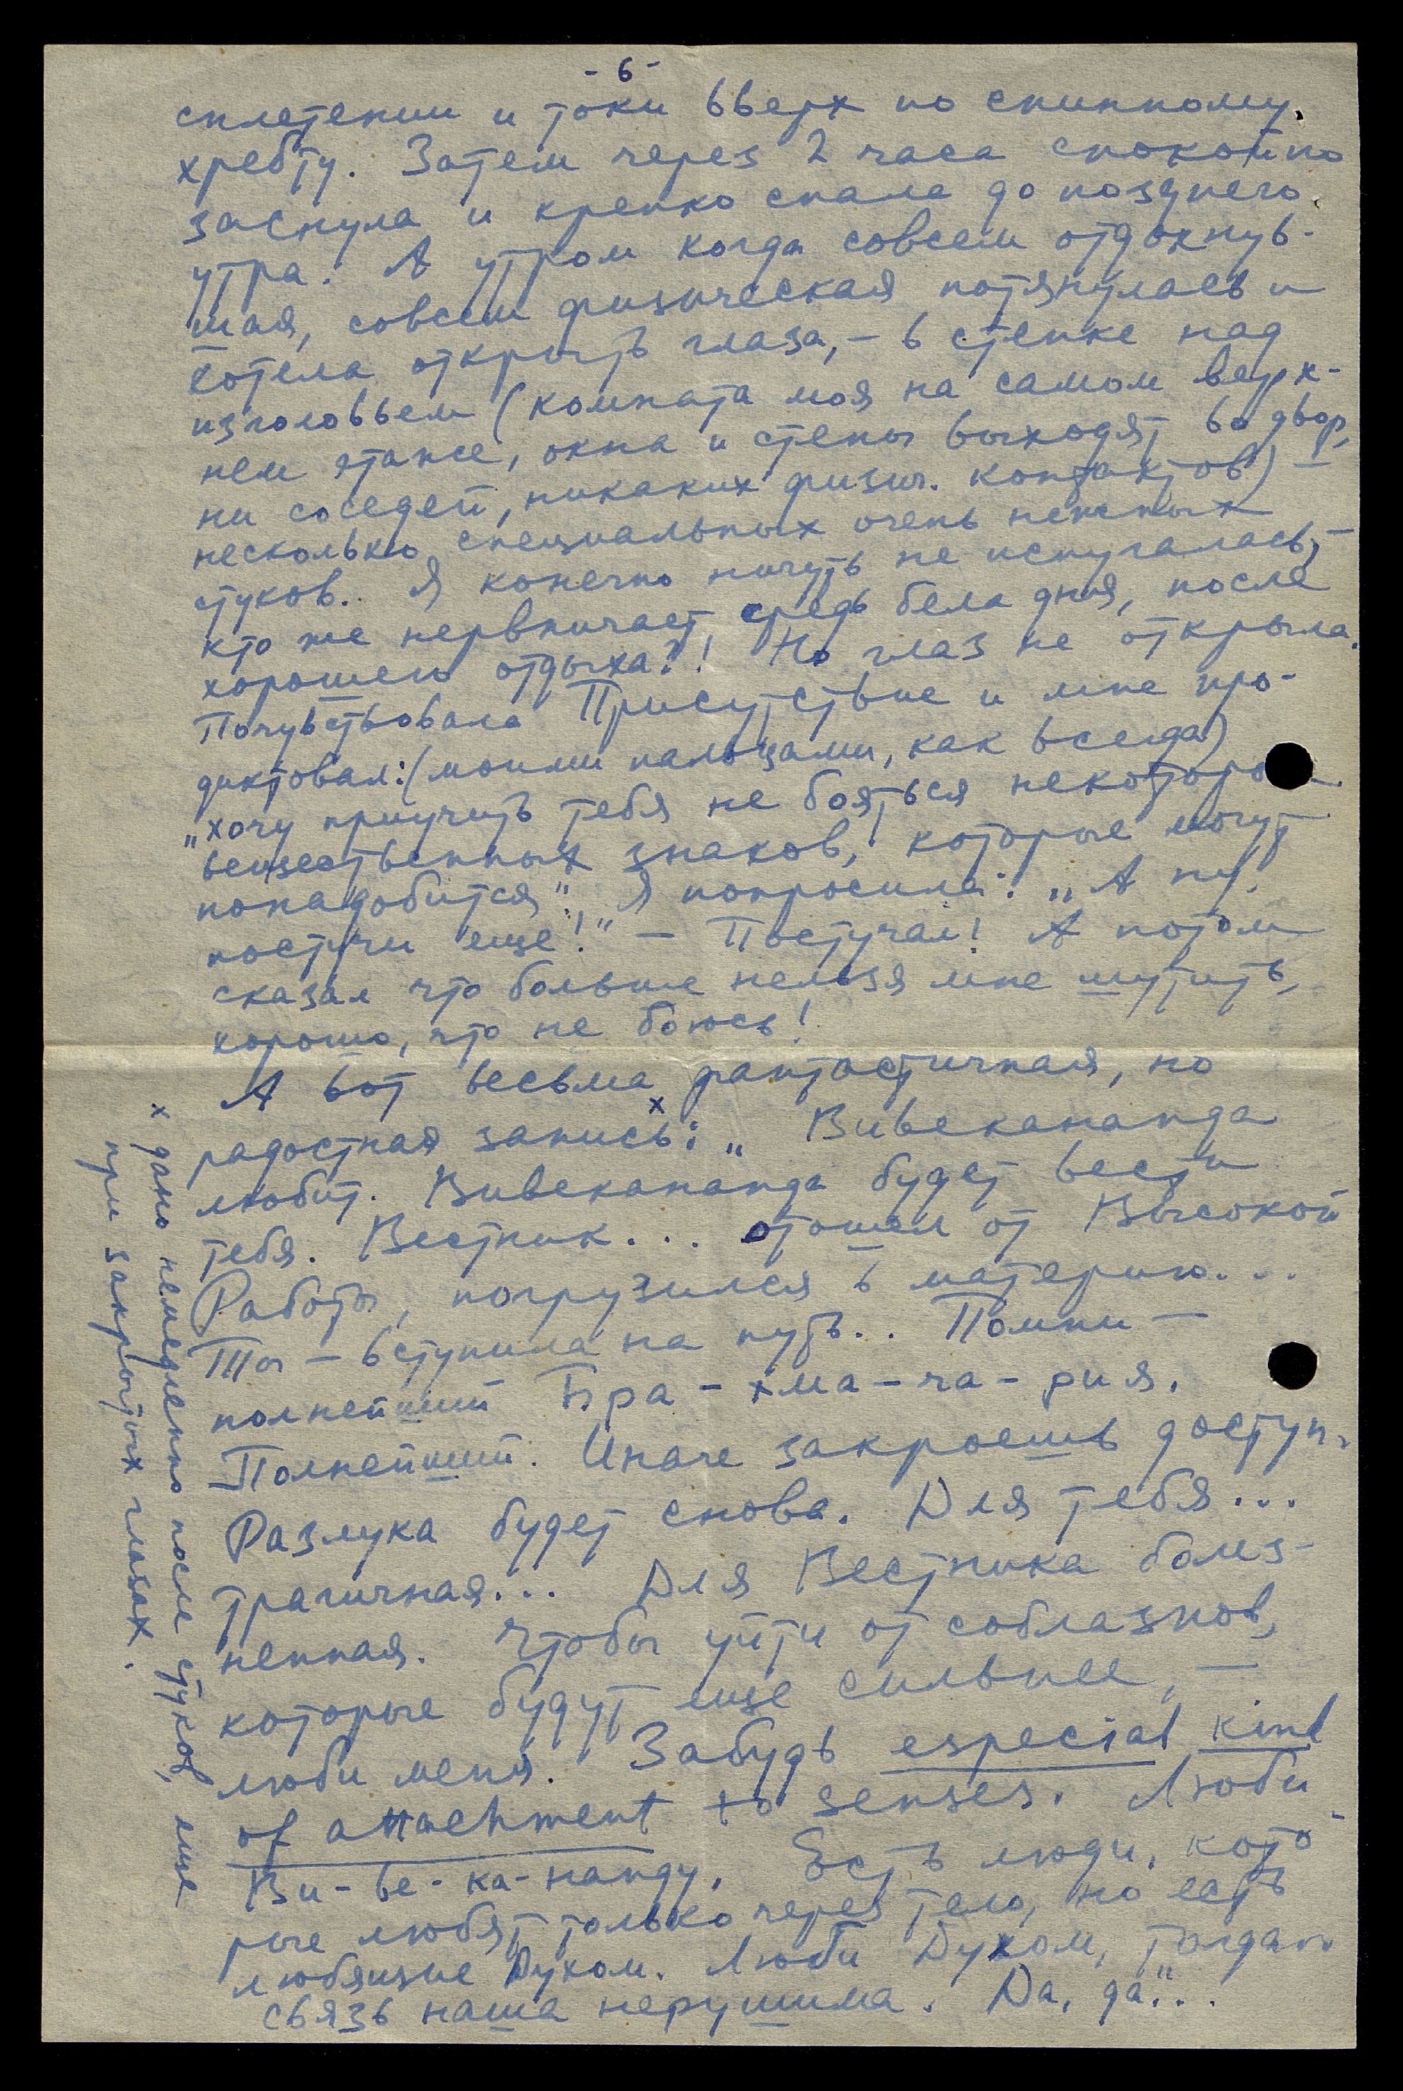 - 6 -
сплетении и токи вверх по спинному
хребту. Затем через 2 часа спокойно
заснула и крепко спала до позднего
утра. А утром когда совсем отдохнув-
шая, совсем физическая потянулась и
хотела открыть глаза, – в стенке над
изголовьем (комната моя на самом верх-
нем этаже, окна и стены выходят во двор,
ни соседей, никаких физич. контактов) –
несколько специальных очень нежных
стуков. Я конечно ничуть не испугалась, –
кто же нервничает средь бела дня, после
хорошего отдыха?! Но глаз не открыла.
Почувствовала Присутствие и мне про-
диктовал: (моими пальцами, как всегда)
„хочу приучить тебя не бояться некоторых
вещественных знаков, которые могут
понадобится". Я попросила: „А ну,
постучи еще!" – Постучал! А потом
сказал что больше нельзя мне шутить,
хорошо, что не боюсь!
А вот весьма фантастичная, но
радостная запись x: „Вивекананда
любит. Вивекананда будет вести
тебя. Вестник... отошел от Высокой
Работы, погрузился в материю...
Ты – вступила на путь.. Помни –
полнейший Бра-хма-ча-рия.
Полнейший. Иначе закроешь доступ.
Разлука будет снова. Для тебя...
трагичная... Для Вестника болез-
ненная. Чтобы уйти от соблазнов,
которые будут еще сильнее, –
люби меня. Забудь especial kind
of attachment to senses. Люби
Ви-ве-ка-нанду. Есть люди, кото-
рые любят только через тело, но есть
любящие Духом. Люби Духом, тогда
связь наша нерушима. Да, да"...
x дано немедленно после стуков, еще
при закрытых глазах.